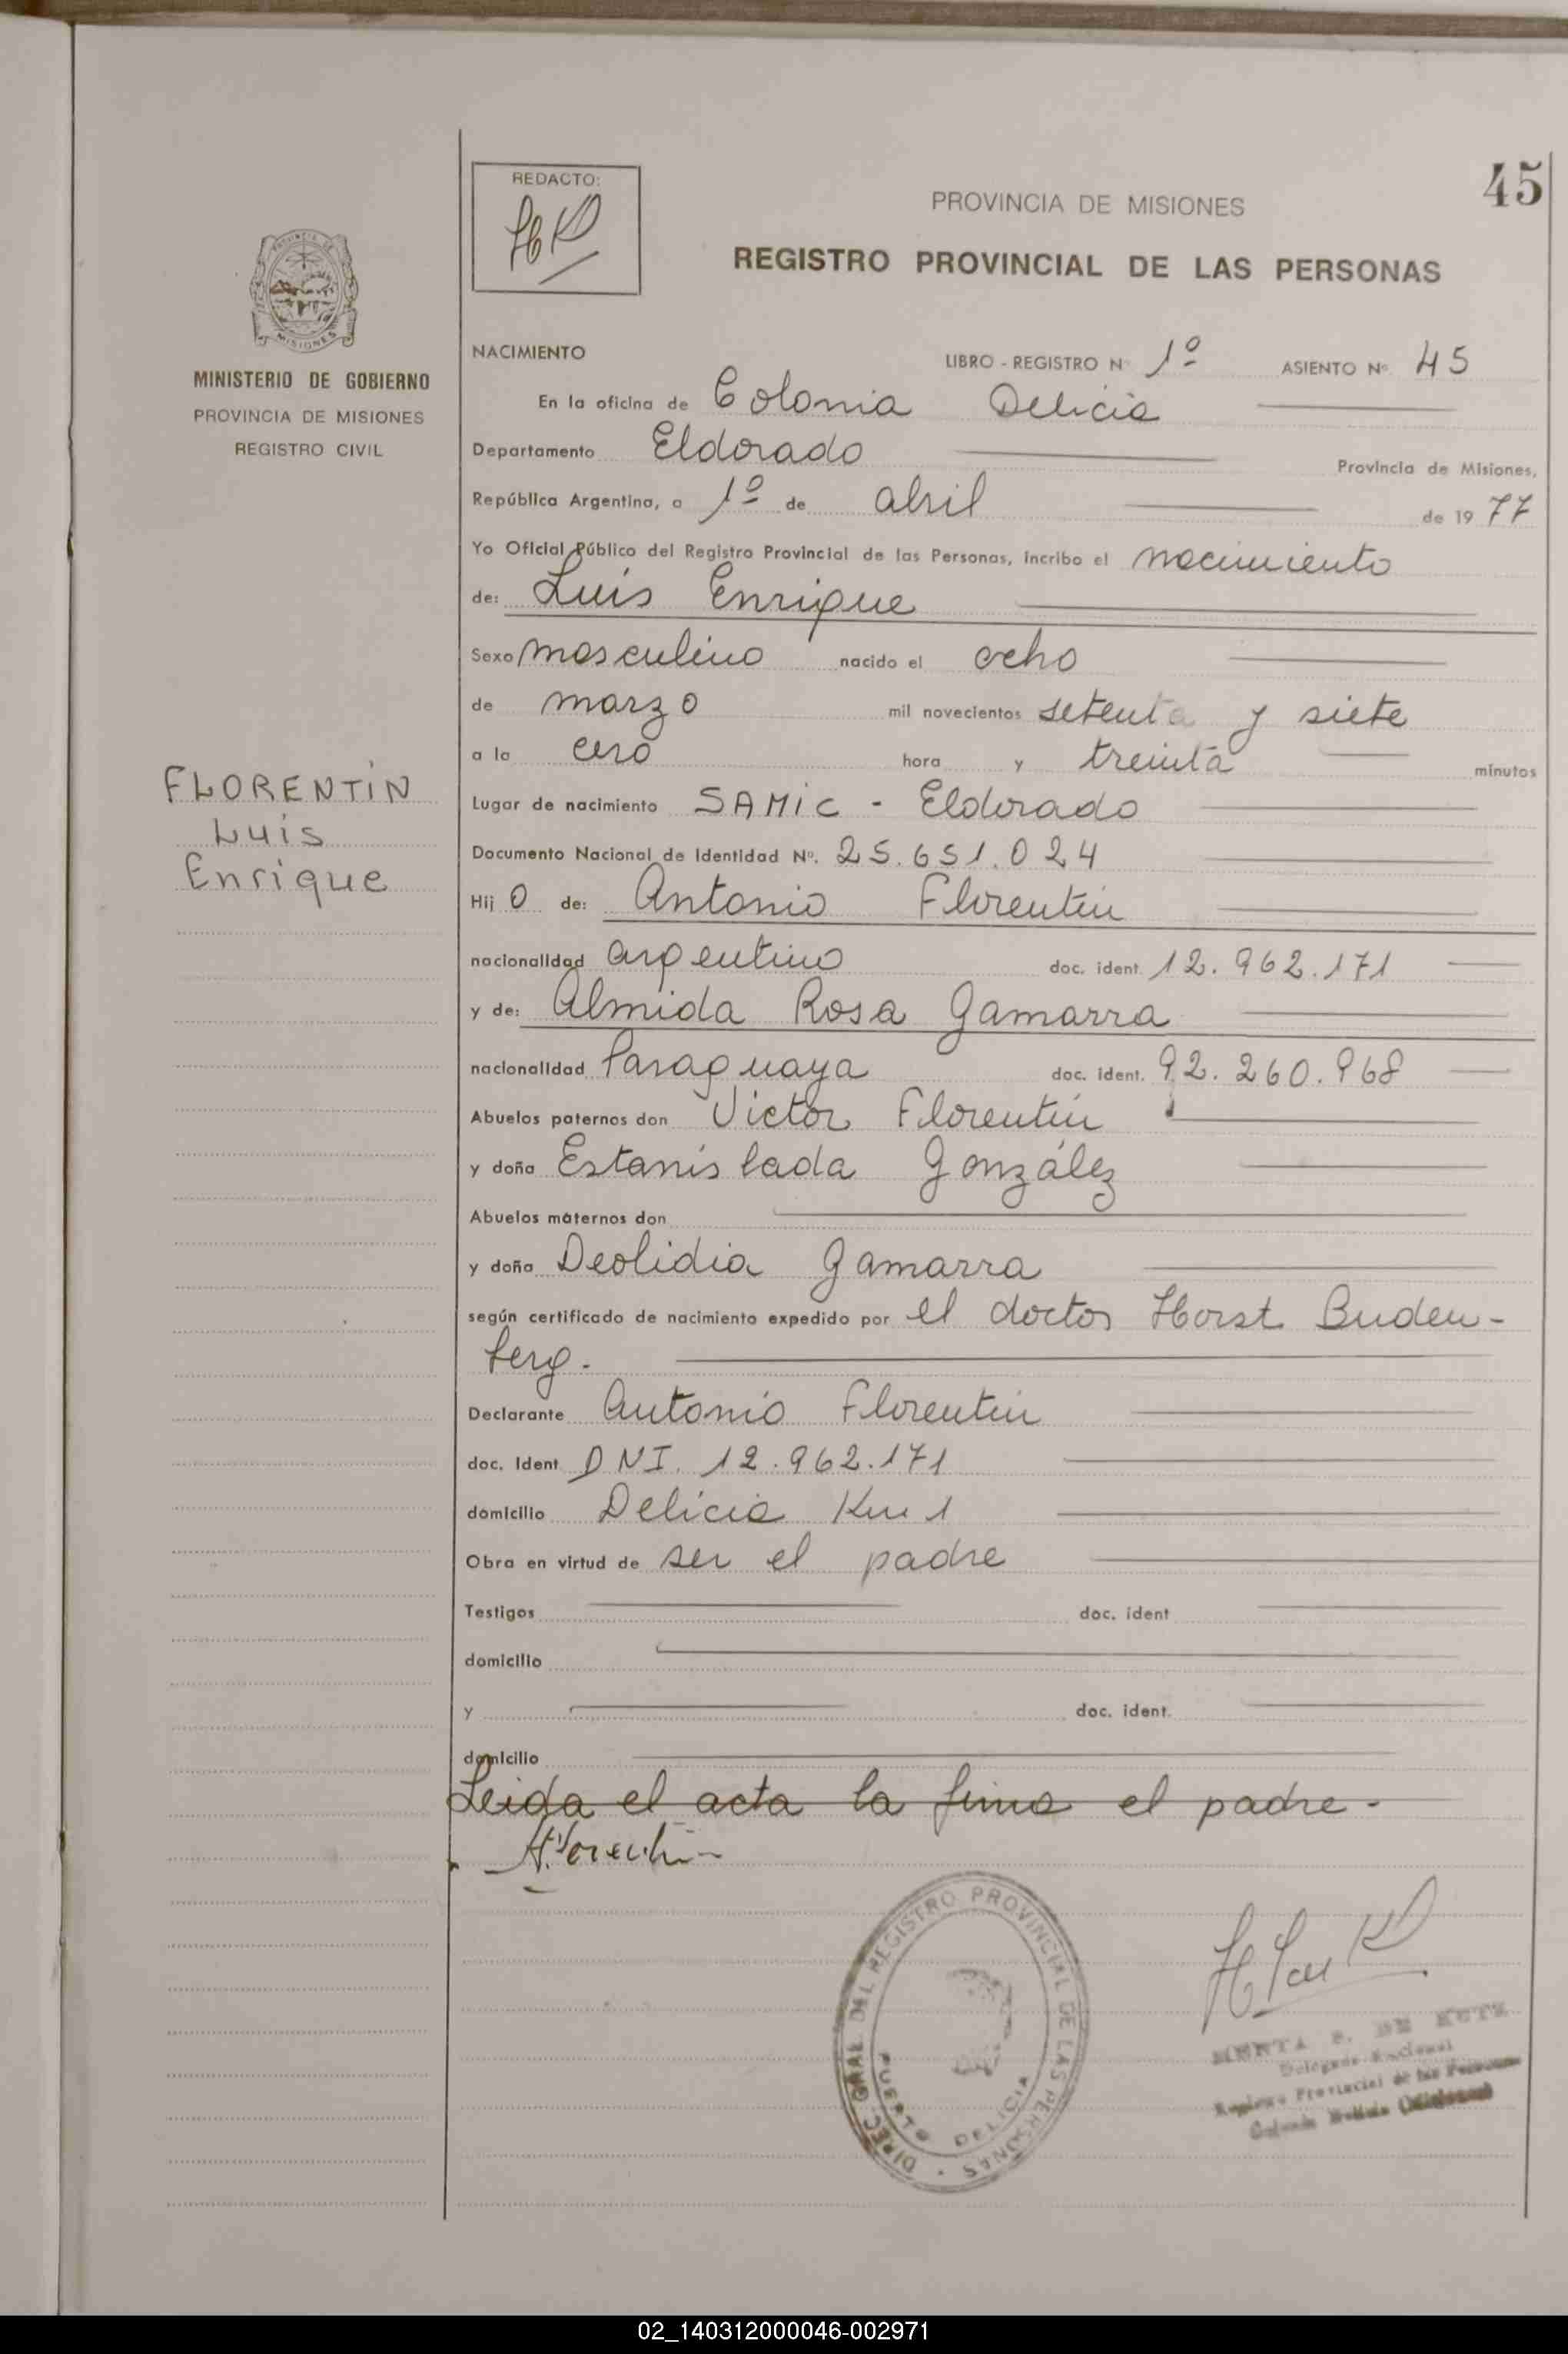 45
REDACTO:
PROVINCIA DE MISIONES
REGISTRO PROVINCIAL DE LAS PERSONAS
MISIONES
MINISTERIO DE GOBIERNO
PROVINCIA DE MISIONES
REGISTRO CIVIL
FLORENTIN
Luis
Enrique
NACIMIENTO LIBRO - REGISTRO Nº 1º ASIENTO Nº 45
En la oficina de Colonia Delicia
Departamento Eldorado Provincia de Misiones,
República Argentina, a 1º de abril de 1977
Yo Oficial Público del Registro Provincial de las Personas, incribo el nacimiento
de: Luis Enrique
Sexo masculino nacido el ocho
de marzo mil novecientos setenta y siete
a la cero hora y treinta minutos
Lugar de nacimiento SAMIC - Eldorado
Documento Nacional de Identidad Nº. 25.651.024
Hij o de: Antonio Florentin
nacionalidad argentino doc. ident. 12.962.171
y de: Almida Rosa Gamarra
nacionalidad Paraguaya doc. ident. 92.260.968
Abuelos paternos don Victor Florentin
y doña Estanislada González
Abuelos maternos don
y doña Deolidia Gamarra
según certificado de nacimiento expedido por el doctor Horst Buden-
berg.
Declarante Antonio Florentin
doc. Ident DNI. 12.962.171
domicilio Delicia Km 1
Obra en virtud de ser el padre
Testigos doc. ident
domicilio
y doc. ident.
domicilio
Leida el acta la firma el padre.
DIREC. GRAL. DEL REGISTRO PROVINCIAL DE LAS PERSONAS
PUERTO DELICIA
Registro Provincial de las Personas
02_140312000046-002971